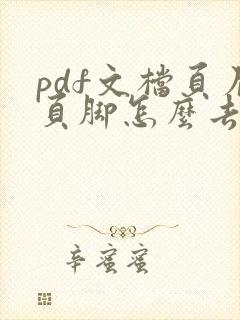 pdf文檔頁
頁腳怎麼去
辛蜜蜜